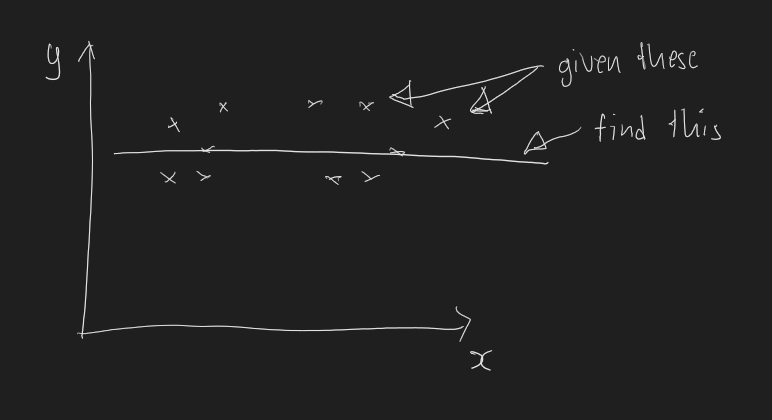 y
given these
find this
x